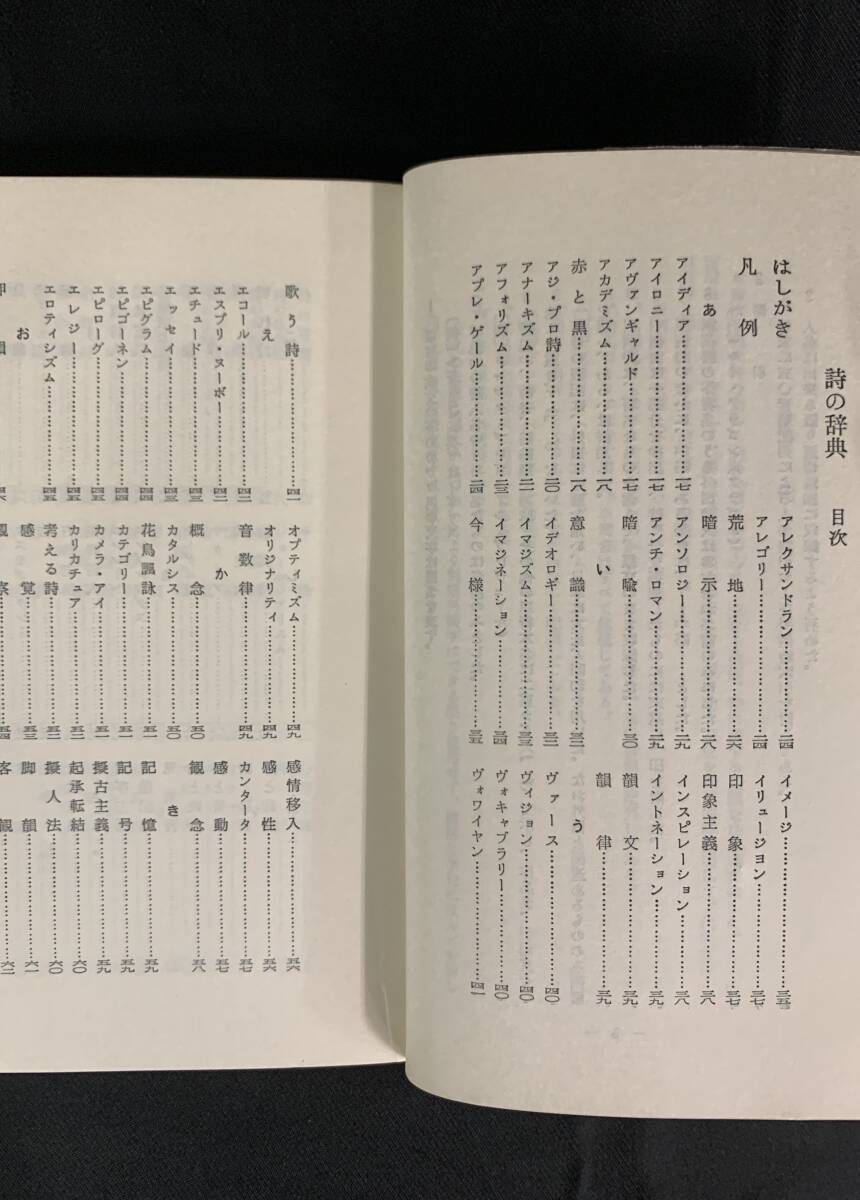 詩の辞典 目次
はしがき
凡例
あ
アイディア……一七
アイロニー……一七
アヴァンギャルド……一七
アカデミズム……一八
赤と黒……一八
アジ・プロ詩……二〇
アナーキズム……二一
アフォリズム……二三
アプレ・ゲール……二四
アレクサンドラン……二四
アレゴリー……二四
荒地……二六
暗示……二八
アンソロジー……二九
アンチ・ロマン……二九
暗喩……三〇
い
意識……三二
イデオロギー……三二
イマジズム……三三
イマジネーション……三四
今様……三五
イメージ……三五
イリュージョン……三七
印象……三七
印象主義……三八
インスピレーション……三八
イントネーション……三九
韻文……三九
韻律……三九
う
ヴァース……四〇
ヴィジョン……四〇
ヴォキャブラリー……四〇
ヴォワイヤン……四一
歌う詩……四一
え
エコール……四二
エスプリ・ヌーボー……四二
エチュード……四三
エッセイ……四三
エピグラム……四四
エピゴーネン……四四
エピローグ……四五
エレジー……四五
エロティシズム……四五
お
押韻
オプティミズム……四九
オリジナリティ……四九
音数律……四九
か
概念……五〇
カタルシス……五〇
花鳥諷詠……五一
カテゴリー……五一
カメラ・アイ……五一
カリカチュア……五二
考える詩……五二
感覚……五三
観察……五四
感情移入……五六
感性……五六
カンタータ……五七
感動……五七
観念……五八
き
記憶……五九
記号……五九
擬古主義……五九
起承転結……六〇
擬人法……六〇
脚韻……六一
客観……六二